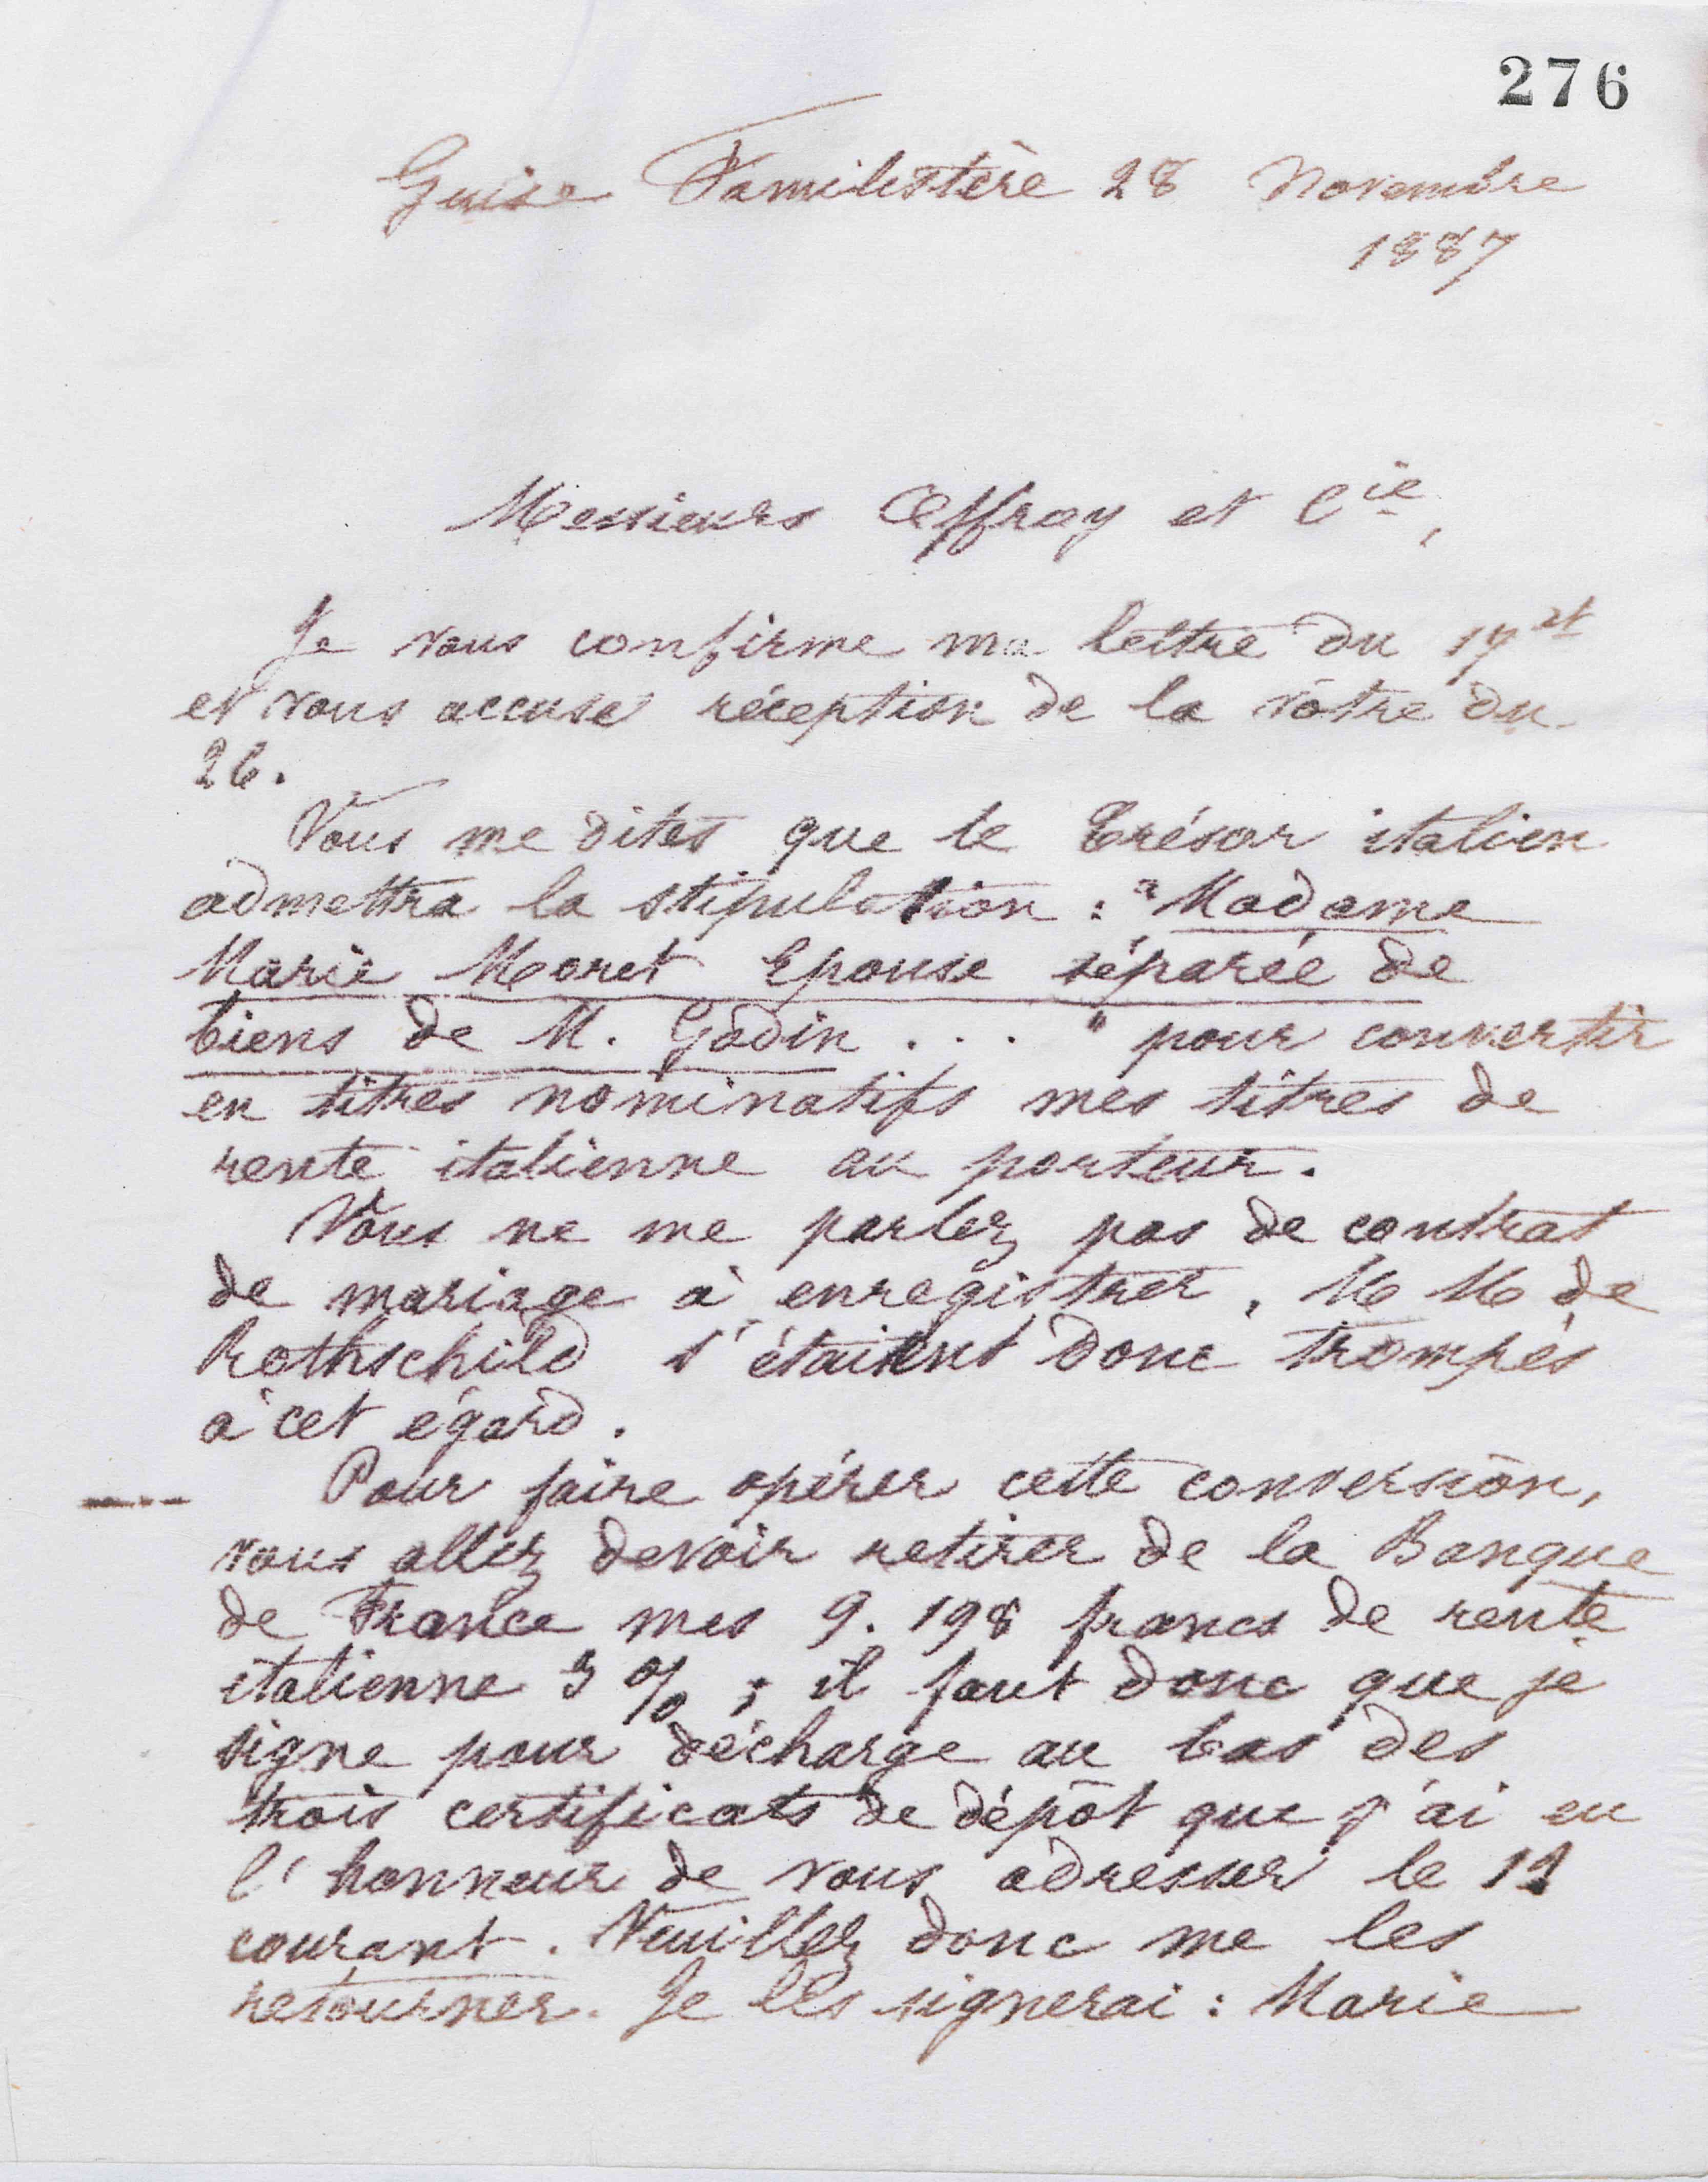 276
Guise Familistère 28 Novembre
1887
Messieurs Offroy et Cie,
Je vous confirme ma lettre du 17 ct
et vous accuse réception de la vôtre du
26.
Vous me dites que le Trésor italien
admettra la stipulation : "Madame
Marie Moret Epouse séparée de
biens de M. Godin . . . " pour convertir
en titres nominatifs mes titres de
rente italienne au porteur.
Vous ne me parlez pas de contrat
de mariage à enregistrer. MM de
Rothschild s'étaient donc trompés
à cet égard.
Pour faire opérer cette conversion,
vous allez devoir retirer de la Banque
de France mes 9.198 francs de rente
italienne % ; il faut donc que je
signe pour décharge au bas des
trois certificats de dépôt que j'ai eu
l'honneur de vous adresser le
courant. Veuillez donc me les
retourner. Je les signerai : Marie